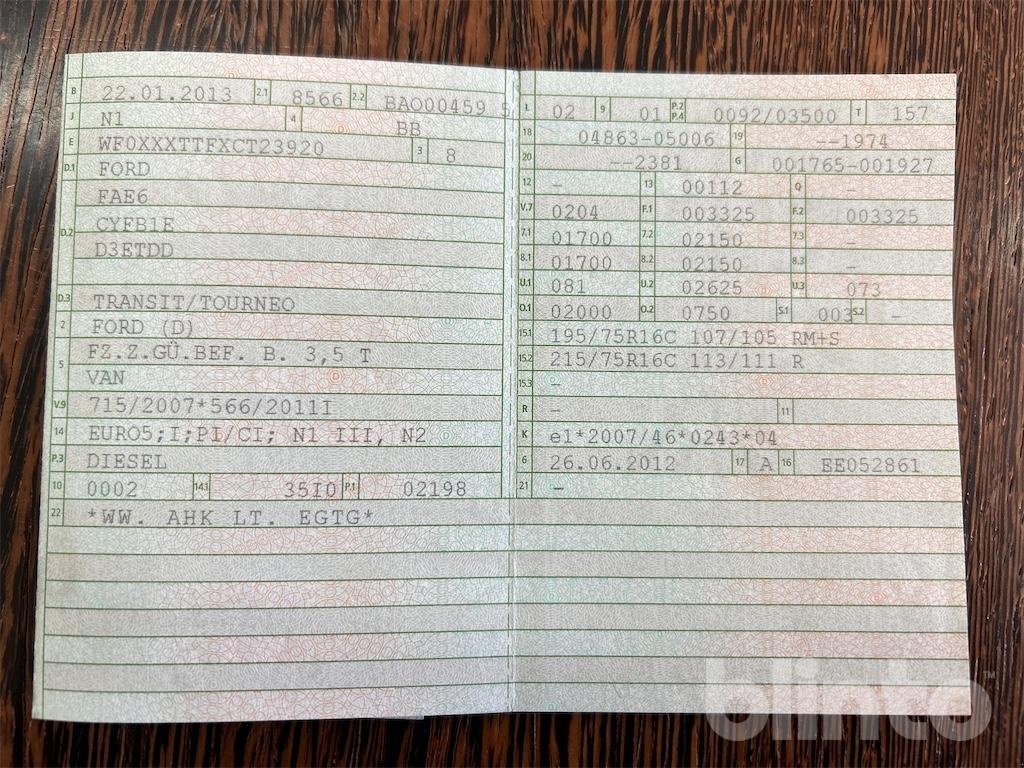 B 22.01.2013 2.1 8566 2.2 BAO00459 5
J N1 4 BB
E WF0XXXTTFXCT23920 3 8
D.1 FORD
FAE6
D.2 CYFB1E
D3ETDD
D.3 TRANSIT/TOURNEO
2 FORD (D)
5 FZ.Z.GÜ.BEF. B. 3,5 T
VAN
V.9 715/2007*566/2011I
14 EURO5;I;PI/CI; N1 III, N2
P.3 DIESEL
10 0002 14.1 35I0 P.1 02198
22 *WW. AHK LT. EGTG*
L 02 9 01 P.2 P.4 0092/03500 T 157
18 04863-05006 19 --1974
20 --2381 G 001765-001927
12 – 13 00112 Q –
V.7 0204 F.1 003325 F.2 003325
7.1 01700 7.2 02150 7.3 –
8.1 01700 8.2 02150 8.3 –
U.1 081 U.2 02625 U.3 073
O.1 02000 O.2 0750 S.1 003 S.2 –
15.1 195/75R16C 107/105 RM+S
15.2 215/75R16C 113/111 R
15.3 –
R – 11
K e1*2007/46*0243*04
6 26.06.2012 17 A 16 EE052861
21 –
blinto™